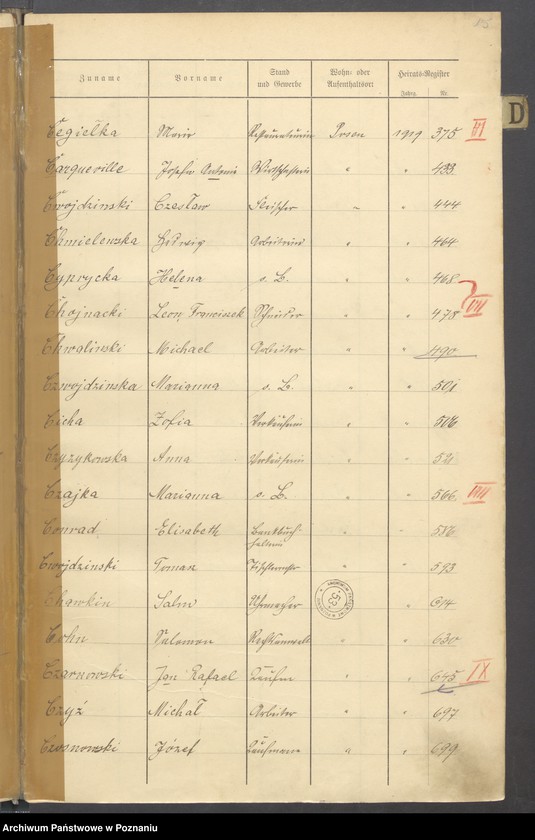 15
Zuname Vorname Stand und Gewerbe Wohn- oder Aufenthaltsort Heirats-Register
Jahrg. Nr.
D
Cegiełka Maria Posen 1919 375 VI
Carqueville Josefa Antonie Wirtschafterin " " 433
Cwojdzinski Czesław Fleischer " " 444
Chmielewska Hedwig Arbeiterin " " 464
Cyprycka Helena o. B. " " 468
Chojnacki Leon, Franciszek Schneider " " 478 VII
Chwalinski Michael Arbeiter " " 490
Czwojdzinska Marianna o. B. " " 501
Cicha Zofia Verkäuferin " " 506
Czyzykowska Anna Verkäuferin " " 521
Czajka Marianna o. B. " " 566 VIII
Conrad Elisabeth Bankbuch- " " 586
halterin
Cwojdzinski Roman Tischlermstr " " 593
Chawkin Salm Uhrmacher " " 614
53
Cohn Salomon Rechtsanwalt " " 630
Czarnowski Jan Rafael Kaufm " " 645 IX
Czyź Michał Arbeiter " " 697
Czosnowski Józef Kaufmann " " 699
Archiwum Państwowe w Poznaniu